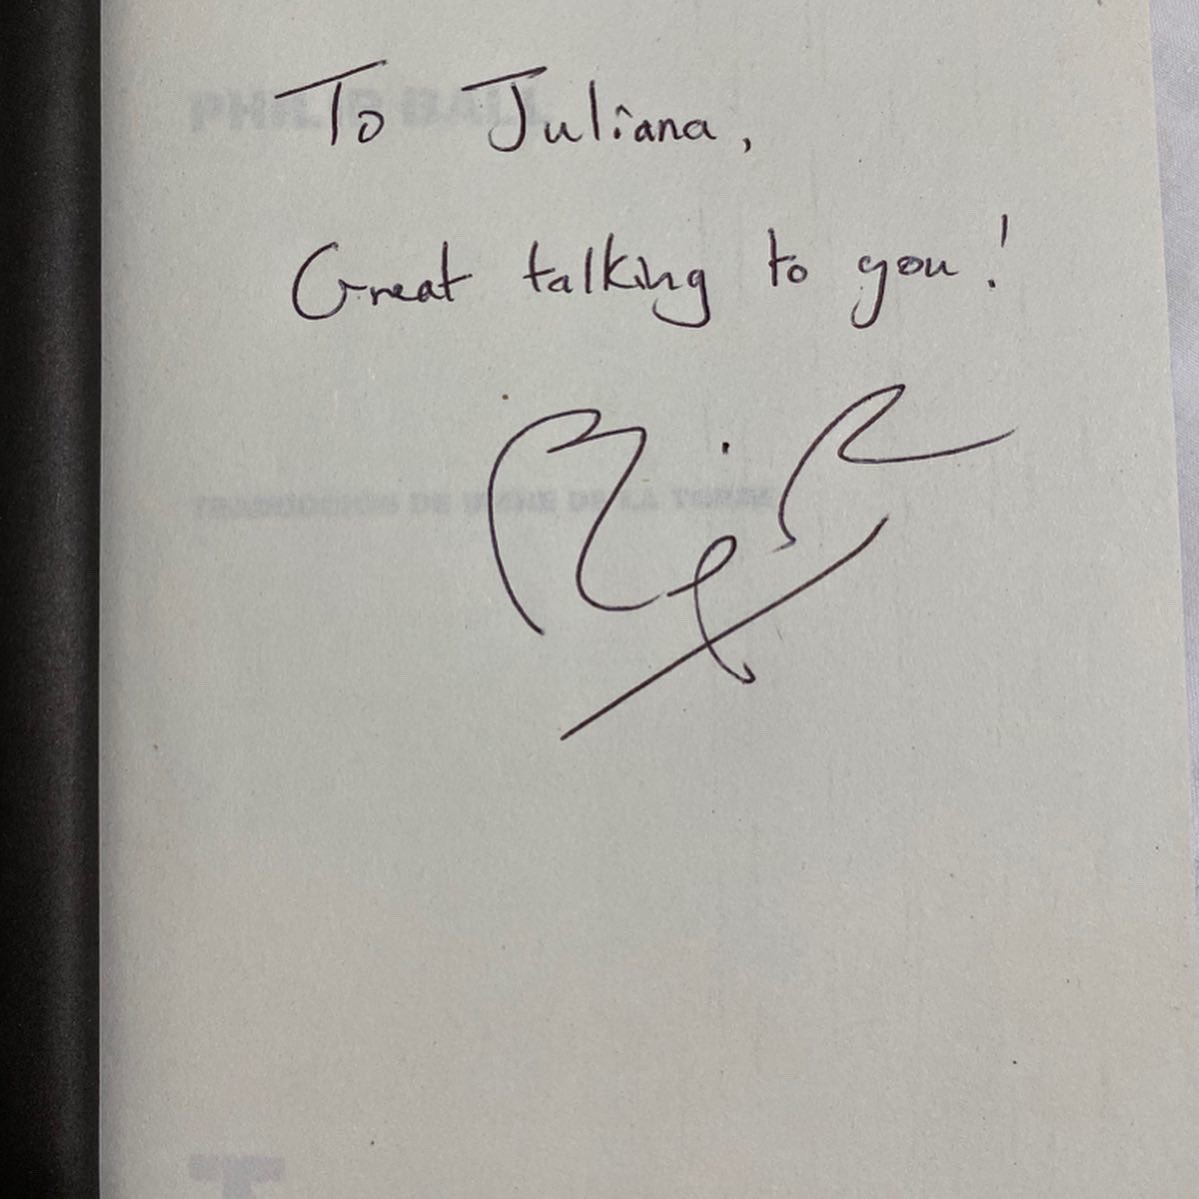 To Juliana,
PHILIP BALL
Great talking to you!
TRADUCCIÓN DE DE LA TORRE